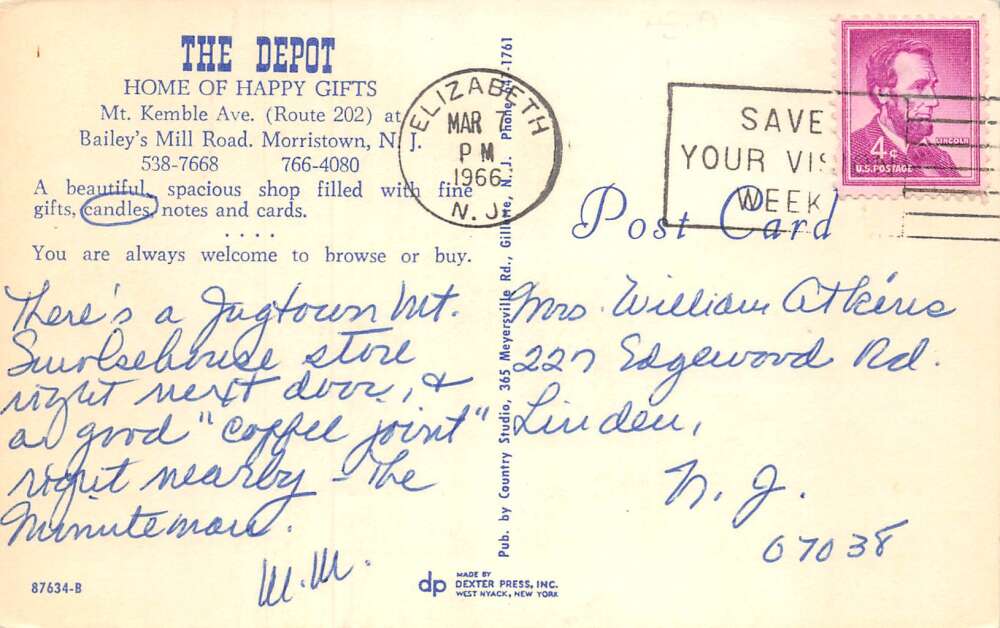 THE DEPOT
HOME OF HAPPY GIFTS
Mt. Kemble Ave. (Route 202) at
Bailey's Mill Road. Morristown, N. J.
538-7668 766-4080
A beautiful, spacious shop filled with fine
gifts, candles, notes and cards.
. . . .
You are always welcome to browse or buy.
There's a Jugtown Mt.
Smokehouse store
right next door, &
a good "coffee joint"
right nearby - the
Minuteman.
M.M.
87634-B
Pub. by Country Studio, 365 Meyersville Rd., Gillette, N. J. Phone -1761
dp
MADE BY
DEXTER PRESS, INC.
WEST NYACK, NEW YORK
ELIZABETH
MAR 7
PM
1966
N. J.
SAVE
YOUR VIS
WEEK
4¢
LINCOLN
U.S. POSTAGE
Post Card
Mrs. William Atkins
227 Edgewood Rd.
Linden,
N. J.
07038